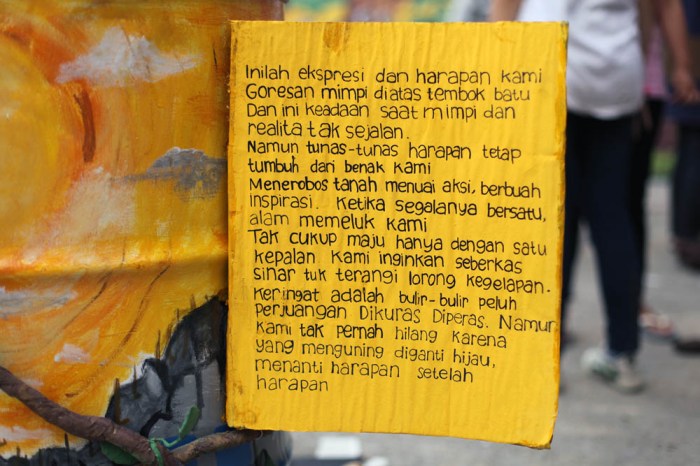 Inilah ekspresi dan harapan kami
Goresan mimpi diatas tembok batu
Dan ini keadaan saat mimpi dan
realita tak sejalan.
Namun tunas-tunas harapan tetap
tumbuh dari benak kami
Menerobos tanah menuai aksi, berbuah
inspirasi. Ketika segalanya bersatu,
alam memeluk kami
Tak cukup maju hanya dengan satu
kepalan. Kami inginkan seberkas
sinar tuk terangi lorong kegelapan.
Keringat adalah bulir-bulir peluh
perjuangan Dikuras Diperas. Namun
kami tak pernah hilang karena
yang menguning diganti hijau,
menanti harapan setelah
harapan